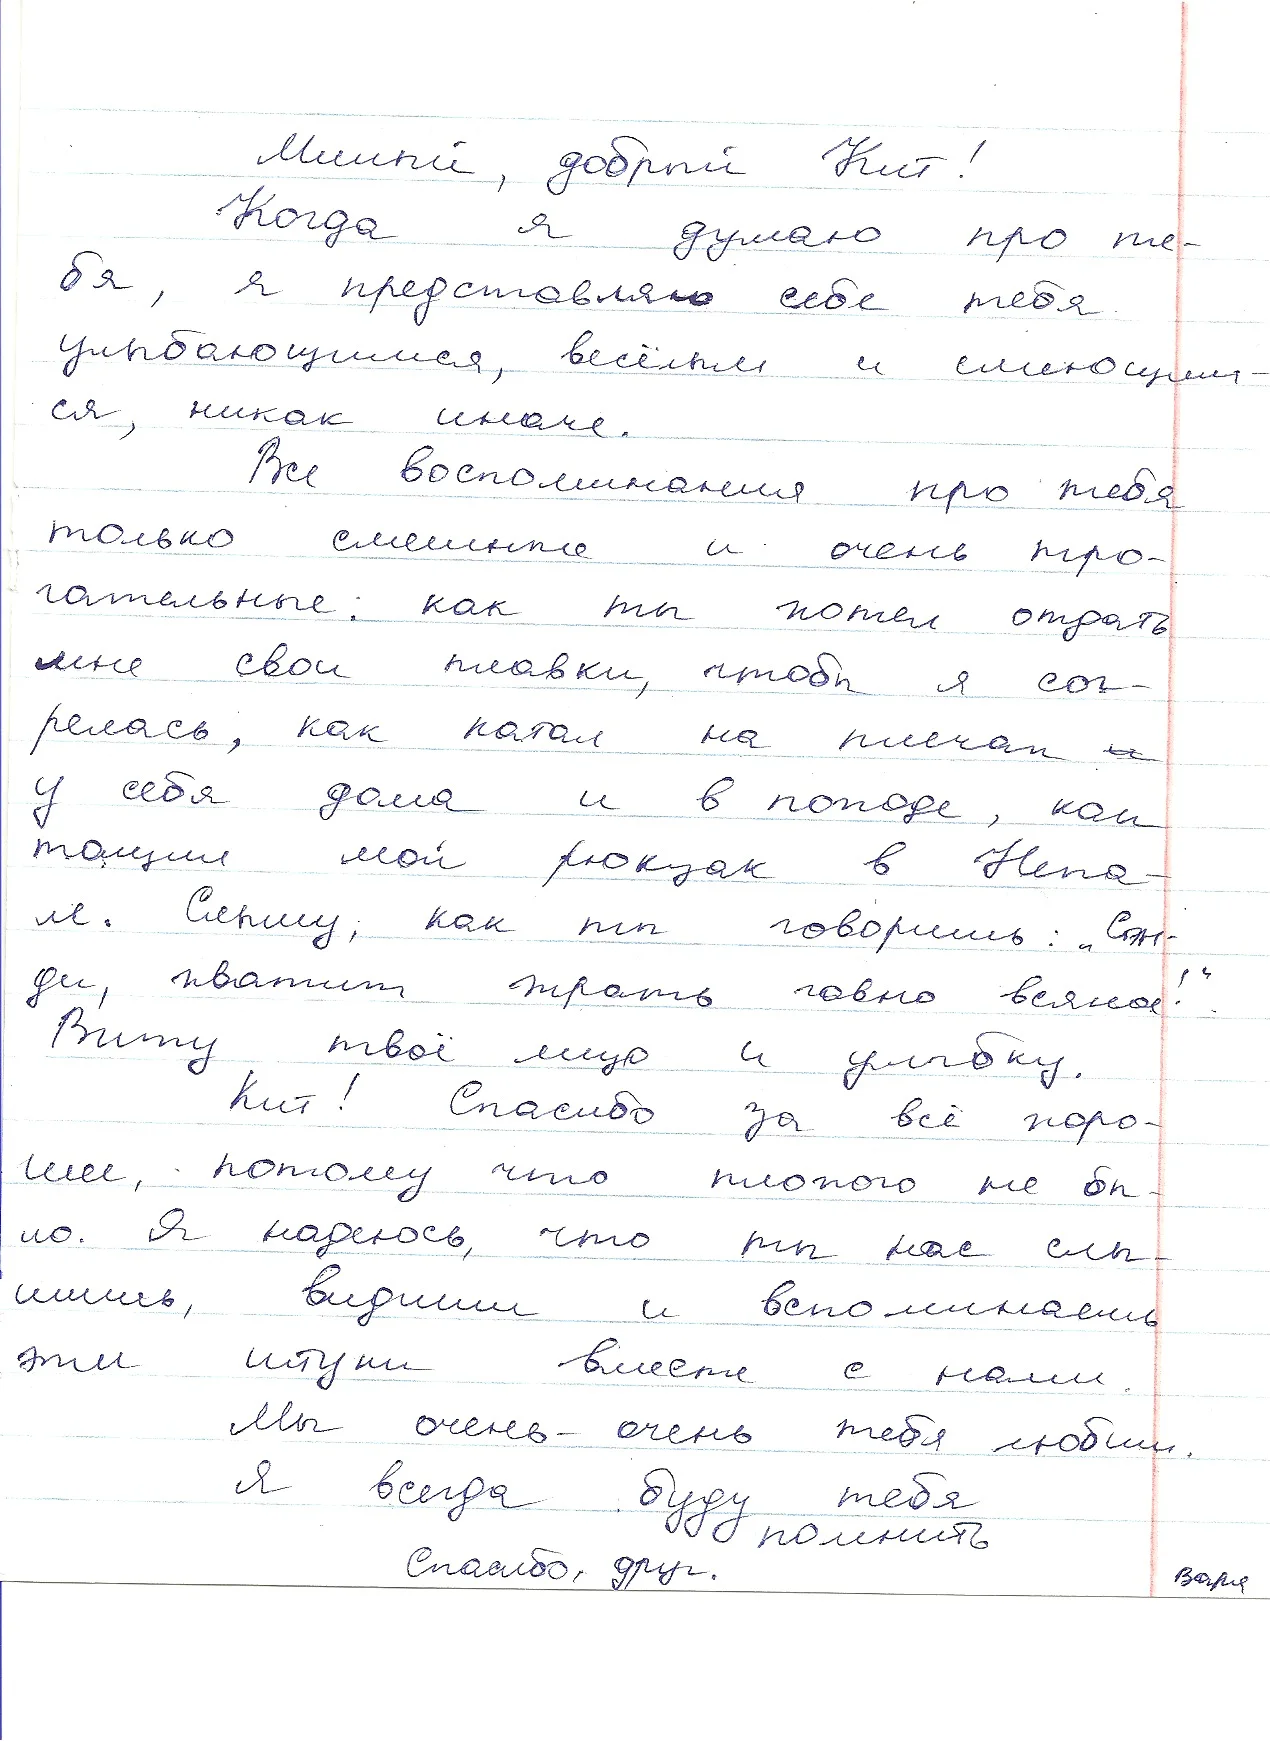 Милый, добрый Кит!
Когда я думаю про те-
бя, я представляю себе тебя
улыбающимся, весёлым и смеющим-
ся, никак иначе.
Все воспоминания про тебя
только смешные и очень тро-
гательные: как ты хотел отдать
мне свои плавки, чтобы я сог-
релась, как катал на плечах
у себя дома и в походе, как
тащил мой рюкзак в Непа-
ле. Слышу, как ты говоришь: „Сэн-
ди, хватит жрать говно всякое!“
Вижу твоё лицо и улыбку.
Кит! Спасибо за всё хоро-
шее, потому что плохого не бы-
ло. Я надеюсь, что ты нас слы-
шишь, видишь и вспоминаешь
эти штуки вместе с нами.
Мы очень-очень тебя любим.
Я всегда буду тебя
помнить
Спасибо, друг.
Варя